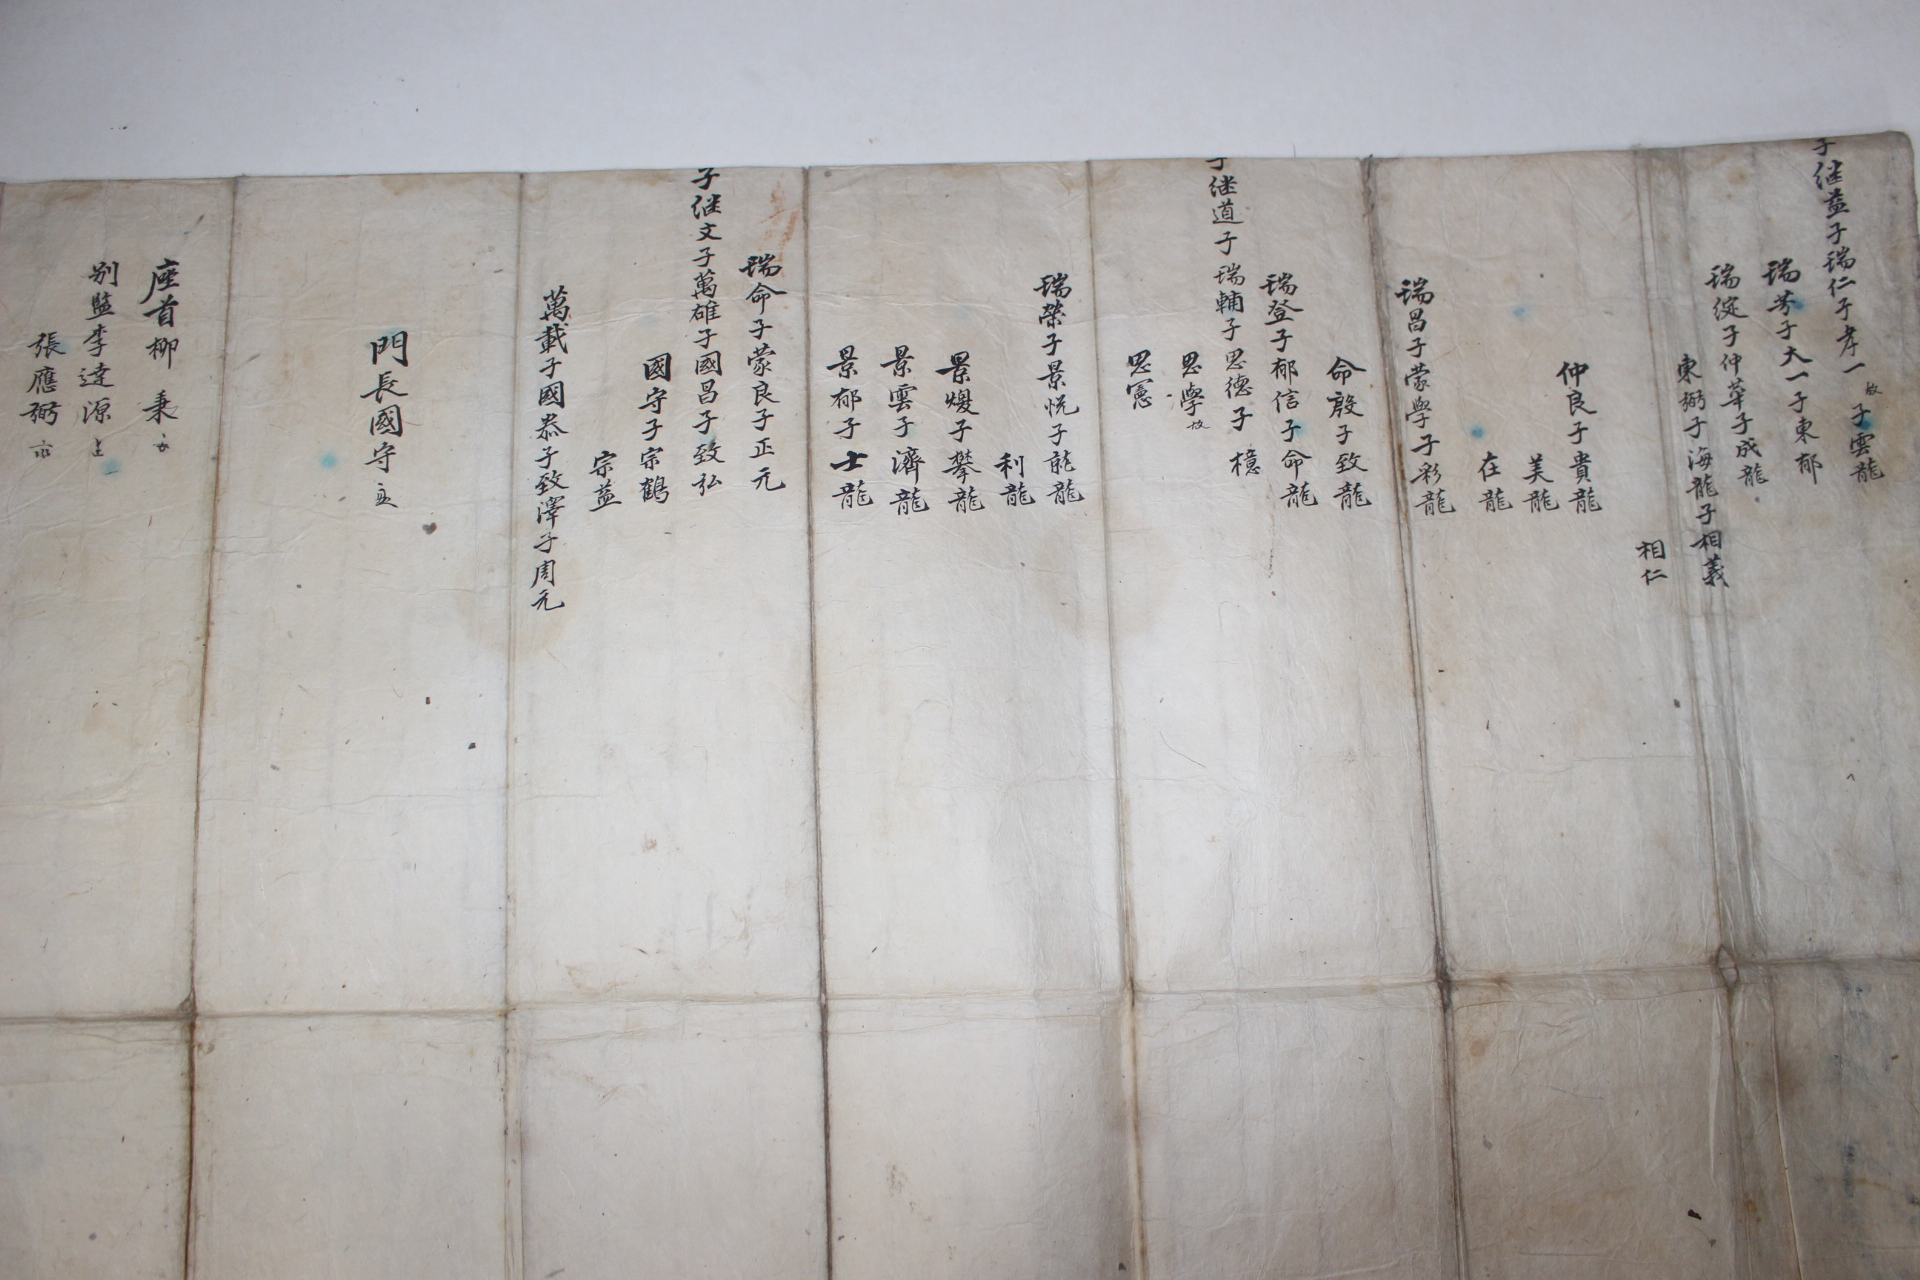 子継益子瑞仁子孝一故子雲龍
瑞芳子大一子東郁
瑞綻子仲華子成龍
東弼子海龍子相義
相仁
仲良子貴龍
美龍
在龍
瑞昌子蒙學子彩龍
命殷子致龍
瑞登子郁信子命龍
子継道子瑞輔子思德子檍
思學故
思憲
瑞榮子景悅子乾龍
利龍
景煖子攀龍
景雲子濟龍
景郁子士龍
瑞命子蒙良子正元
子継文子萬雄子國昌子致弘
國守子宗鶴
宗益
萬載子國恭子致澤子周元
門長國守
座首柳秉
別監李達源
張應弼